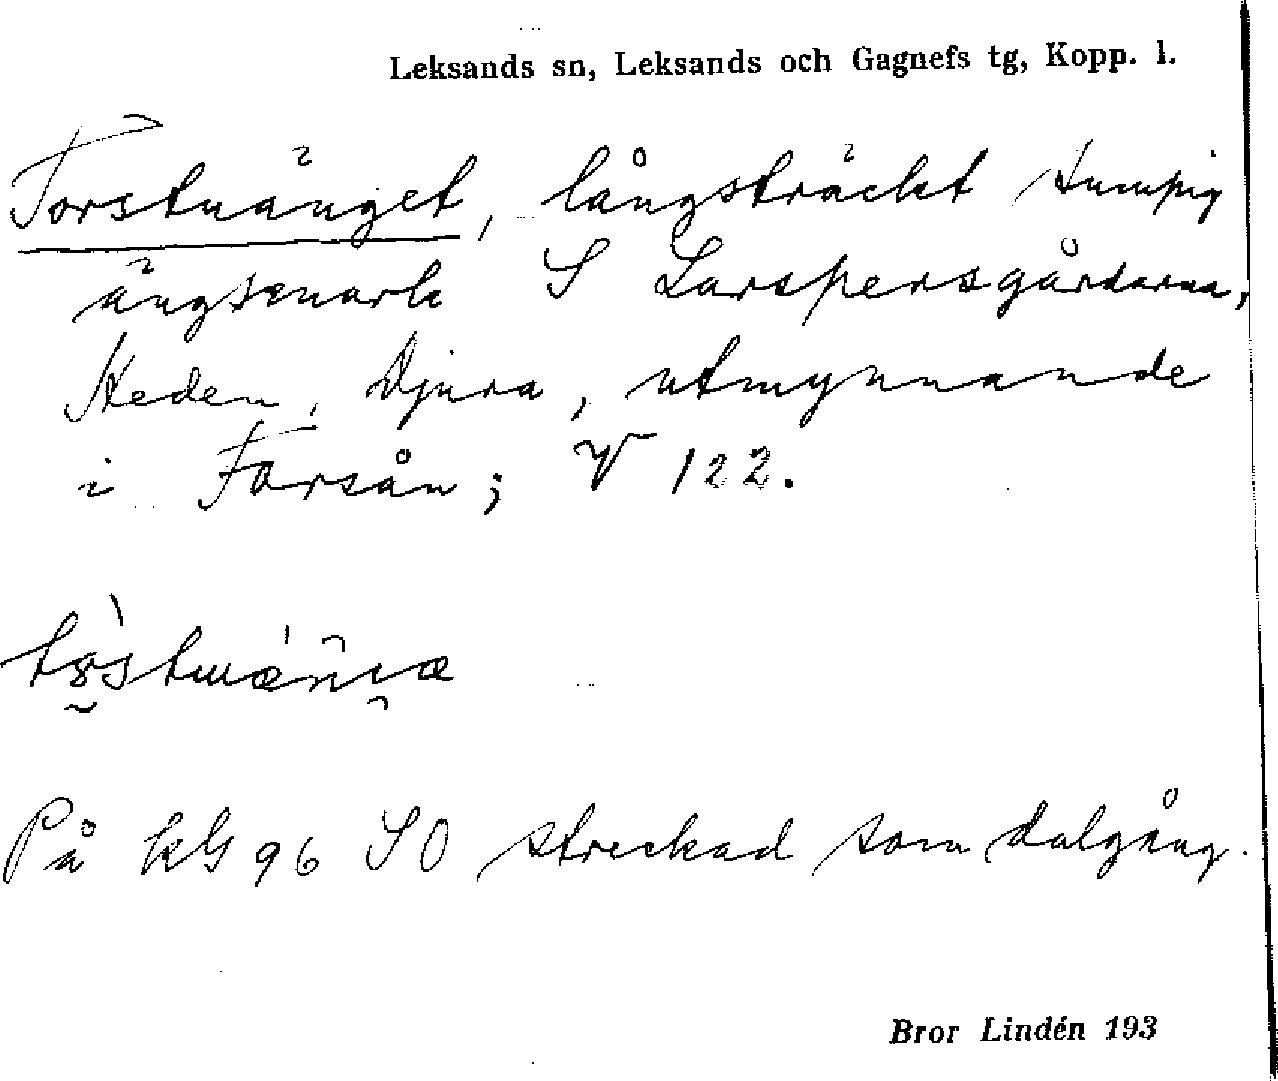 Leksands sn, Leksands och Gagnefs tg, Kopp. l.
Torstuänget, långsträckt sumpig
ängsmark S Larspersgårdarna,
Heden, Djura, utmynnande
i Forsån; V 122.
På kbl 96 SO streckad som dalgång.
Bror Lindén 193